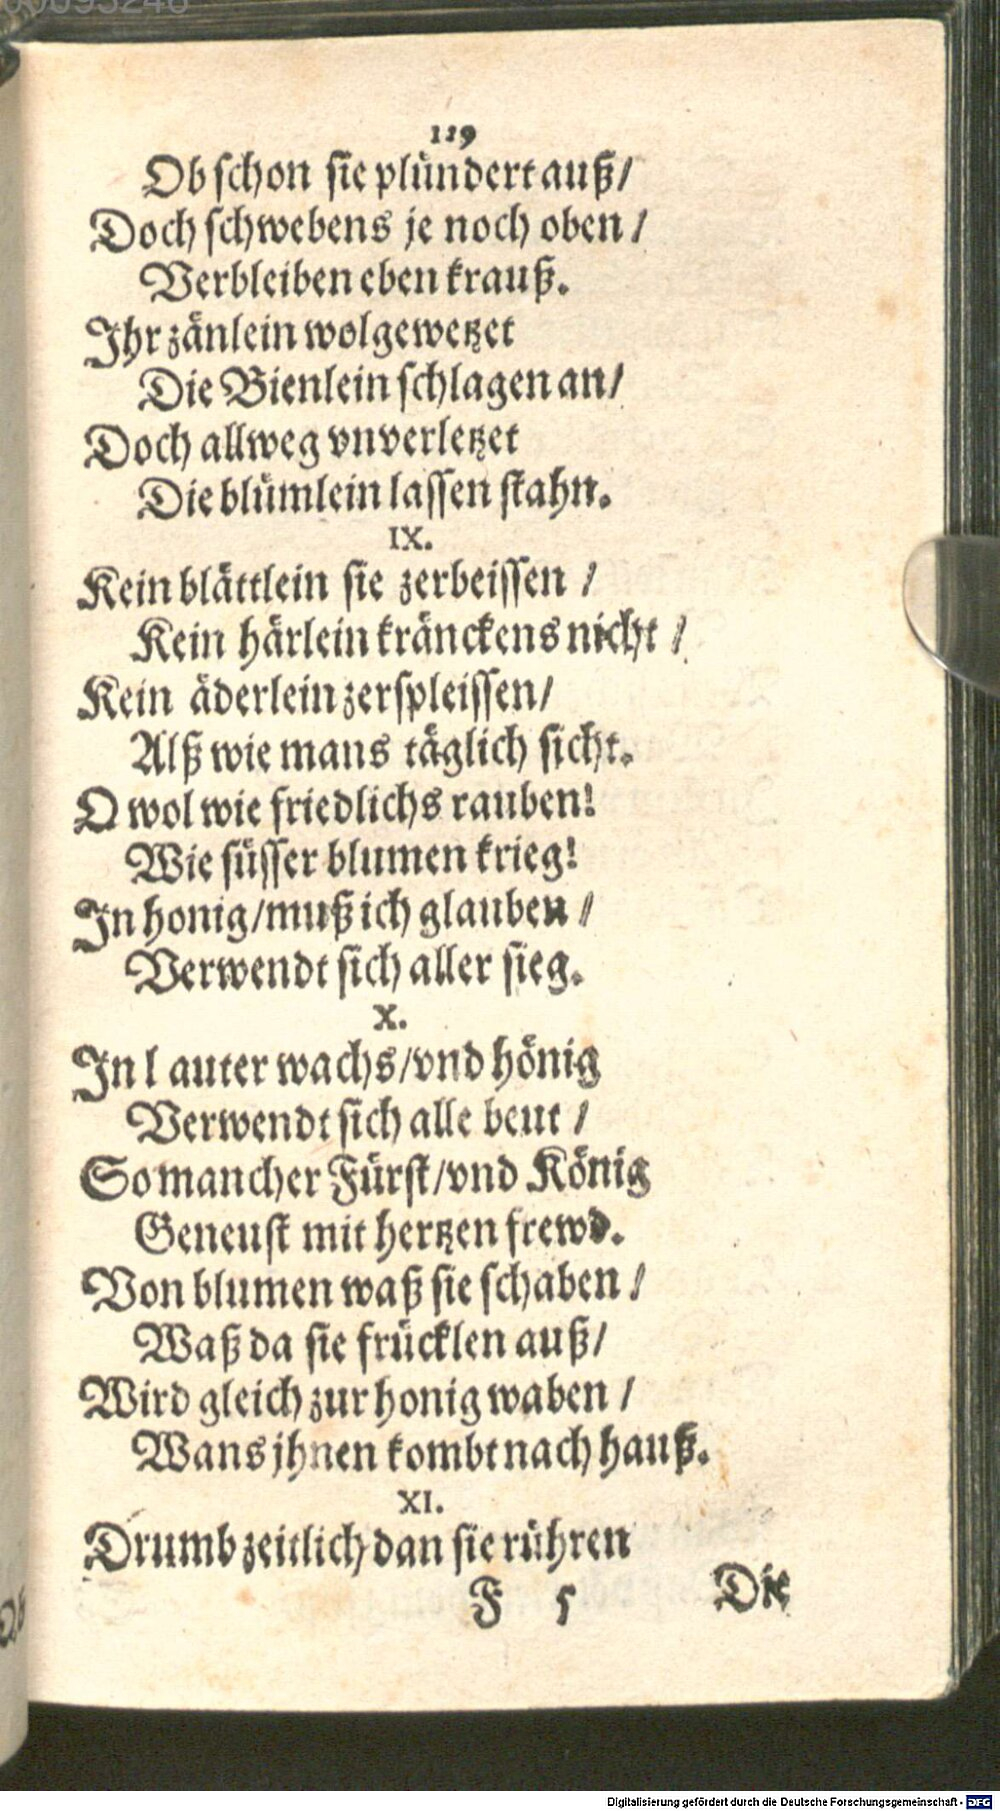 119
Ob schon sie plündert auß/
Doch schwebens je noch oben/
Verbleiben eben krauß.
Ihr zänlein wolgewetzet
Die Bienlein schlagen an/
Doch allweg vnverletzet
Die blümlein lassen stahn.
IX.
Kein blättlein sie zerbeissen/
Kein härlein kränckens nicht/
Kein äderlein zerspleissen/
Alß wie mans täglich sicht.
O wol wie friedlichs rauben!
Wie süsser blumen krieg!
In honig/muß ich glauben/
Verwendt sich aller sieg.
X.
In lauter wachs/vnd hönig
Verwendt sich alle beut/
So mancher Fürst/vnd König
Geneust mit hertzen frewd.
Von blumen waß sie schaben/
Waß da sie frücklen auß/
Wird gleich zur honig waben/
Wans jhnen kombt nach hauß.
XI.
Drumb zeitlich dan sie rühren
F 5 Die
Digitalisierung gefördert durch die Deutsche Forschungsgemeinschaft - DFG